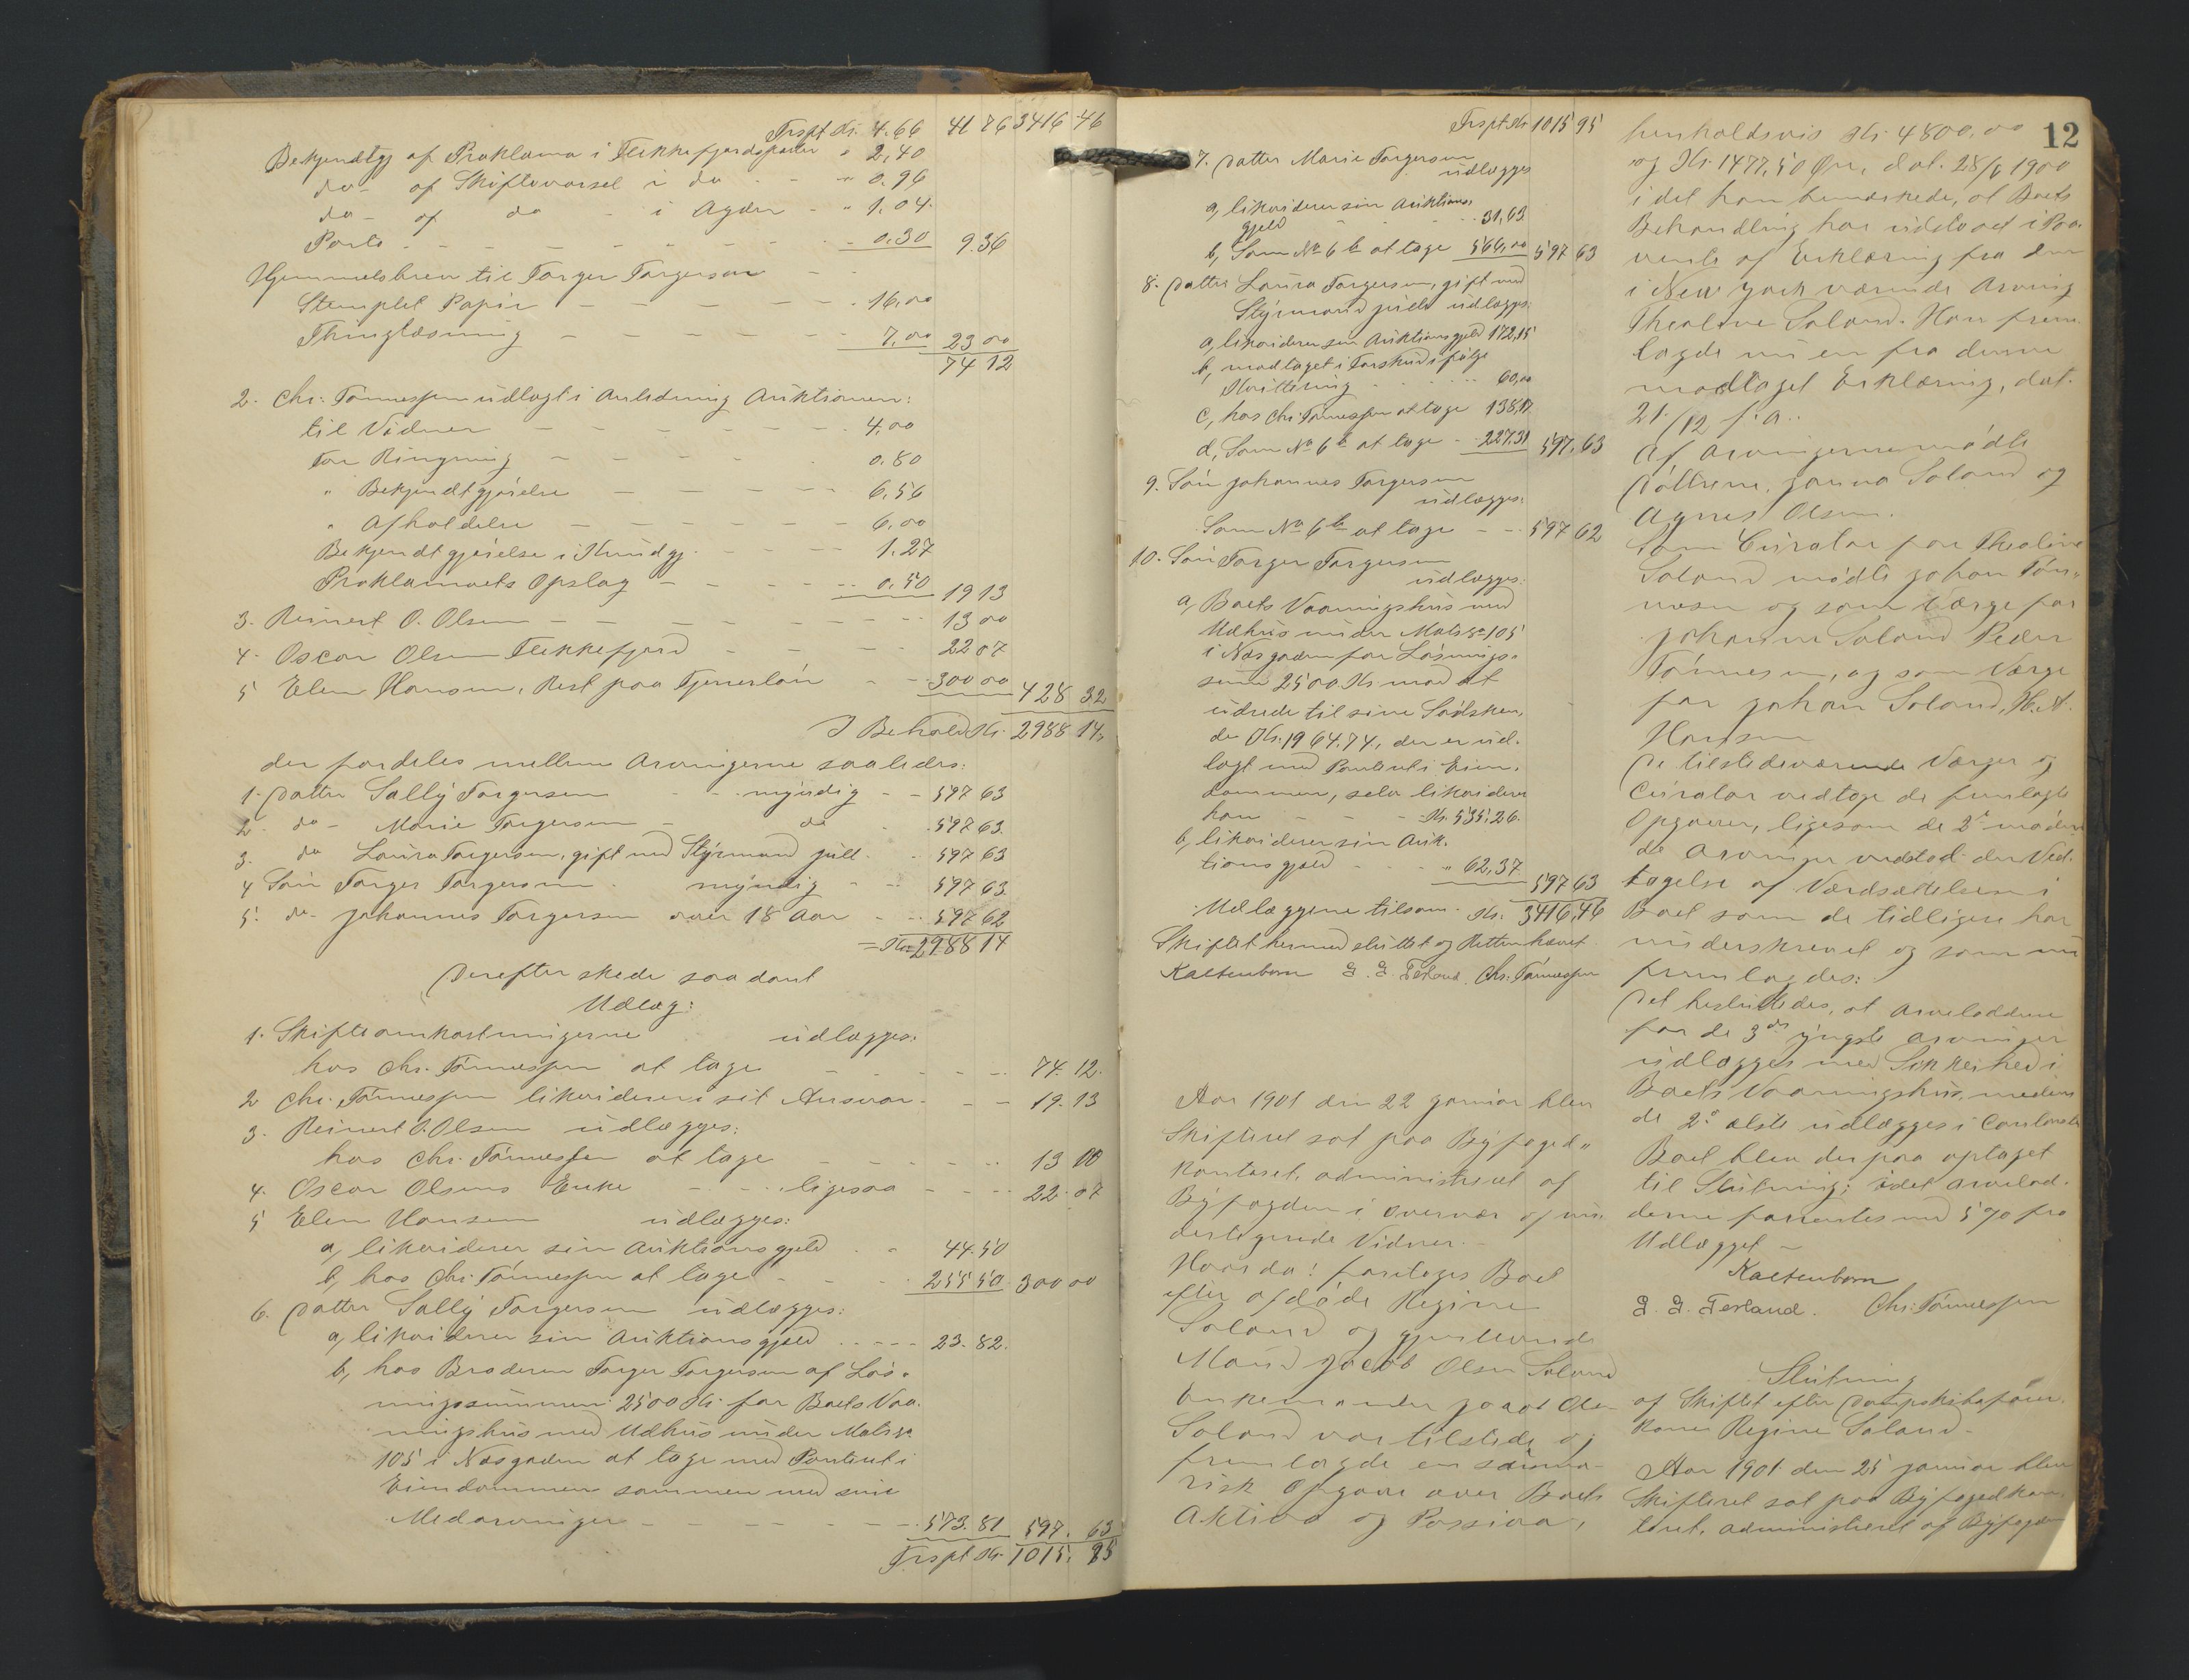 Trspt Kr. 4.66 41 76 3416 46
Bekjendtg af Proklama i Flekkefjordsposten " 2,40
do - af Skiftevarsel i do - - " 0.96
do - af do - i Agder - " 1.04.
Porto - - - - - - - - 0.30 9.36
Hjemmelsbrev til Torger Torgersen - -
Stemplet Papir - - - - - 16,00
Thinglæsning - - - - - 7,00 23 00
74 12
2. Chr. Tönnessen udlagt i Anledning Auktionen:
til Vidner - - - - - 4,00
For Ringning - - - - 0.80
" Bekjendtgjörelse - - - - 6,56
" Afholdelse - - - - - 6,00
Bekjendtgjörelse i Kundgj. - - - 1.27
Proklamaets Opslag - - - - 0,50 19 13
3. Reinert O. Olsen - - - - - - 13 00
4. Oscar Olsen Flekkefjord - - - 22 07
5 Elen Hansen, Rest paa Tjenerlön - - 300 00 428 32
I Behold Kr. 2988 14,
der fordeles mellem Arvingerne saaledes:
1. Datter Sally Torgersen - - myndig - - 597 63
2. do - Marie Torgersen - do - 597 63.
3. do Laura Torgersen, gift med Styrmand Juell - 597 63
4 Sön Torger Torgersen - myndig - - 597 63.
5. do - Johannes Torgersen over 18 Aar - - 597 62
= Kr. 2988 14
Derefter skede saadant
Udlæg:
1. Skifteomkostningerne udlægges:
hos Chr. Tönnessen at tage - - - - - 74. 12.
2 Chr. Tönnessen likviderer i sit Ansvar - - - 19. 13
3. Reinert O. Olsen udlægges:
hos Chr. Tönnessen at tage - - - - 13 00
4. Oscar Olsens Enke - - - ligesaa - - - 22. 07
5 Elen Hansen udlægges:
a, likviderer sin Auktionsgjeld - " 44.50
b, hos Chr. Tönnessen at tage - - - 255 50. 300 00
6. Datter Sally Torgersen udlægges:
a, likviderer sin Auktionsgjeld - - - - 23. 82.
b, hos Broderen Torger Torgersen af Lös-
ningssummen 2500 Kr. for Boets Vaa-
ningshus med Udhus under Mats No
105 i Næsgaden at tage med Panteret i
Eiendommen sammen med sine
Medarvinger - - - - - - 573. 81 597. 63
Trspt Kr. 1015. 95
Trspt Kr 1015 95
7. Datter Marie Torgersen
udlægges
a, likviderer sin Auktions-
gjeld - - - - 31,63.
b, Som No 6 b at tage 566,00 597 63
8. Datter Laura Torgersen, gift med
Styrmand Juell udlægges:
a, likviderer sin Auktionsgjeld 172,15
b, modtaget i Forskud ifölge
Kvittering - - - - 60,00
c, hos Chr. Tönnessen at tage 138,17
d, Som No 6 b at tage - 227.31 597, 63
9. Sön Johannes Torgersen
udlægges:
Som No 6 b at tage - - 597 62
10. Sön Torger Torgersen
udlægges:
a, Boets Vaaningshus med
Udhus under Mats No 105
i Næsgaden for Lösnings-
sum 2500 Kr. mod at
udrede til sine Södsken,
de Kr. 1964.74, der er ud-
lagt med Panteret i Eien-
dommen, selv likviderer
han - - - Kr. 535,26.
b, likviderer sin Auk-
tionsgjeld - - - " 62,37. 597 63
Udlæggene tilsam. Kr. 3416,46
Skiftet hermed sluttet og Retten hævet
Kaltenborn G. G. Tesland. Chr. Tönnessen
Aar 1901 den 22 Januar blev
Skifteret sat paa Byfoged-
kontoret, administreret af
Byfogden i Overvær af un-
dertegnede Vidner. -
Hvorda: foretoges Boet
efter afdöde Regine
Soland og gjenlevende
Mand Jacob Olsen Soland
Enkemanden Jacob Olsen
Soland var tilstede og
fremlagde en summa-
risk Opgave over Boets
Aktiva og Passiva,
12
henholdsvis Kr. 4800,00
og Kr. 1477,50 Øre, dat. 28/6 1900
idet han bemærkede, at Boets
Behandling har udstaaet i Paa-
vente af Erklæring fra den
i New York værende Arving
Theoline Soland. Han frem-
lagde nu en fra denne
modtaget Erklæring, dat.
21/12 f. A..
Af Arvingerne mödte
Döttrene, Janna Soland og
Agnes Olsen.
Som Curator for Theoline
Soland mödte Johan Tön-
nesen og som Værge for
Johanne Soland Peder
Tönnesen, og som Værge
for Johan Soland, H. A.
Hansen
De tilstedeværende Værger og
Curator vedtoge de fremlagte
Opgaver, ligesom de 2de möden-
de Arvinger vedstod den Ved-
tagelse af Værdsættelsen i
Boet som de tidligere har
underskrevet og som nu
fremlagdes:
Det besluttedes, at Arvelodderne
for de 3de yngste Arvinger
udlægges med Sikkerhed i
Boets Vaaningshus, medens
de 2de ælste udlægges i Contanter
Boet blev derpaa optaget
til Slutning; idet Arvelod-
derne forrentes med 5 % fra
Udlægget -
Kaltenborn
G. G. Tesland. Chr. Tönnessen
Slutning
af Skiftet efter Dampskibsförer-
kone Regine Soland.
Aar 1901 den 25 Januar blev
Skifteret sat paa Byfogedkon-
toret, administreret af Byfogden